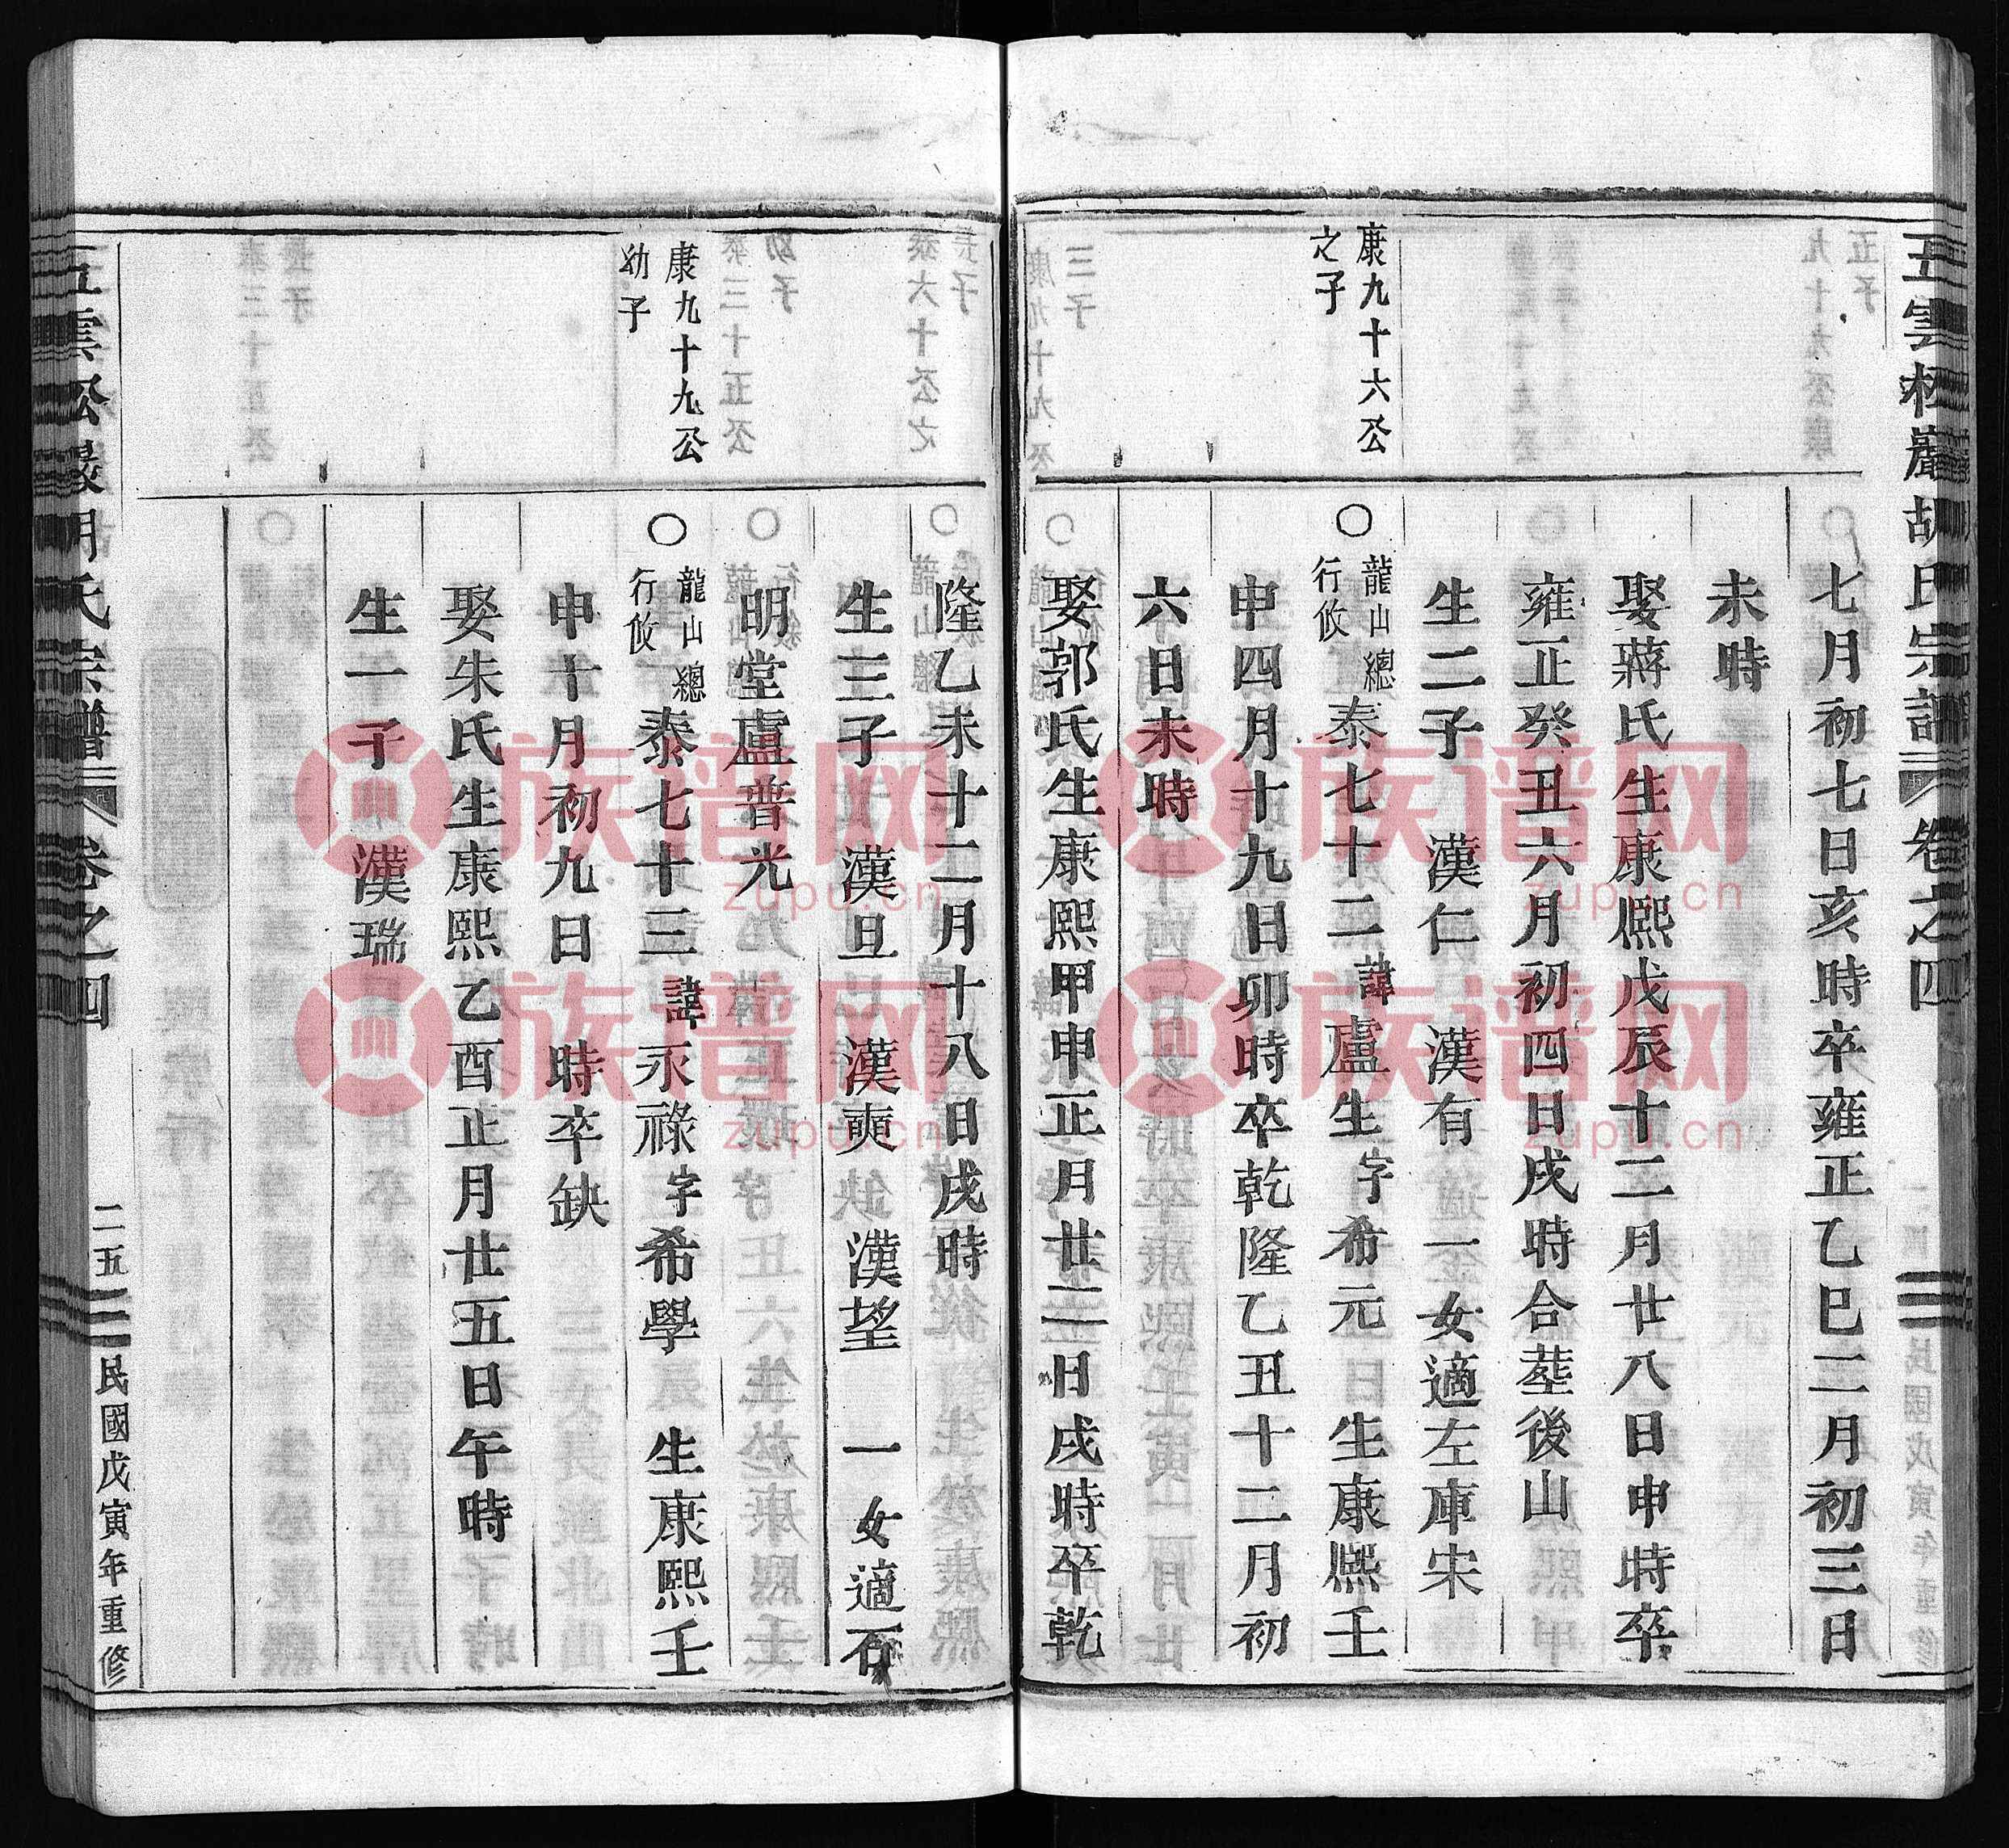 五雲松巖胡氏宗譜 卷之四
七月初七日亥時卒雍正乙巳二月初三日
未時
娶蔣氏生康熙戊辰十二月廿八日申時卒
雍正癸丑六月初四日戌時合塟後山
生二子 漢仁 漢有 一女適左庫宋
康九十六公
之子
○龍山總
行攸
泰七十二諱盧生字希元 生康熙壬
申四月十九日卯時卒乾隆乙丑十二月初
六日未時
娶郭氏生康熙甲申正月廿二日戌時卒乾
隆乙未十二月十八日戌時
生三子 漢旦 漢奭 漢望 一女適石
明堂盧普光
康九十九公
幼子
○龍山總
行攸
泰七十三諱永祿字希學 生康熙壬
申十月初九日 時卒缺
娶朱氏生康熙乙酉正月廿五日午時
生一子 漢瑞
五雲松巖胡氏宗譜 卷之四 二五 民國戊寅年重修
族谱网
zupu.cn
族谱网
zupu.cn
族谱网
zupu.cn
族谱网
zupu.cn